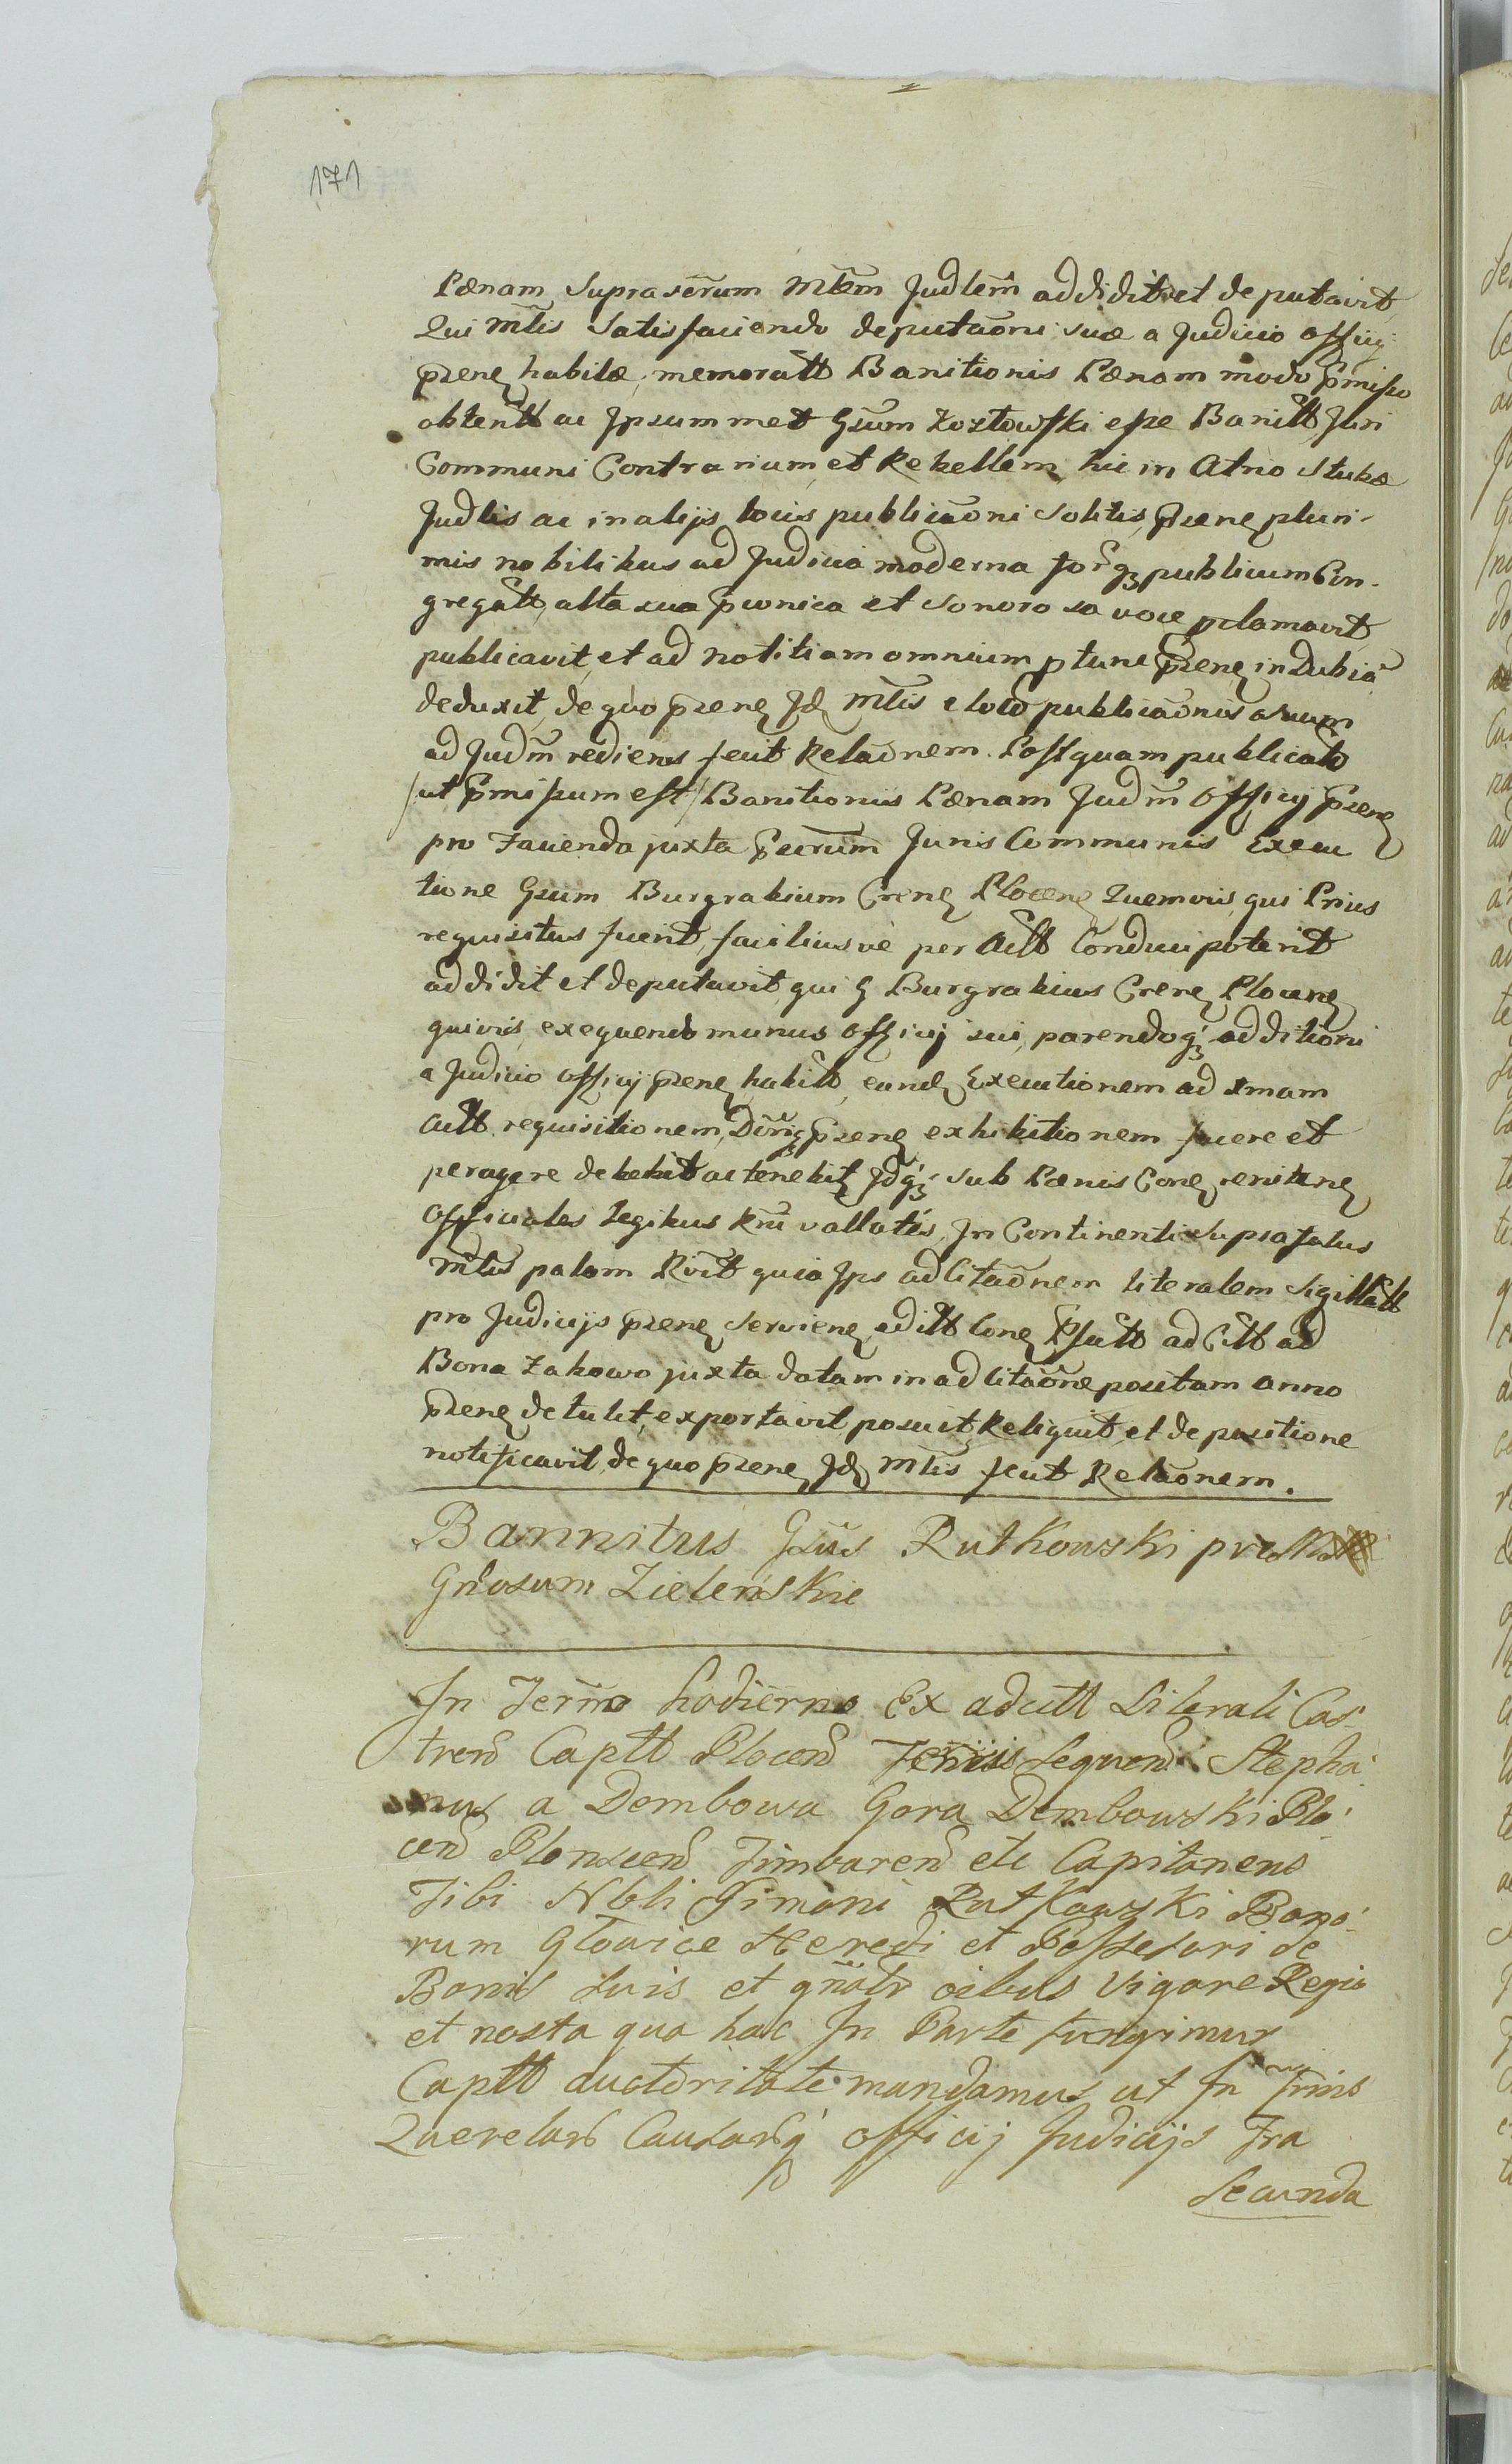 171
Pænam supra sērum Mlēm Judlem̄ addidit et deputavit,
Qui Mlīs satisfaciendo deputaōni suæ a Judicio officij
p̄sene habitæ, memoratt Banitionis Pænam modo p̄misso
obtentt ac Ipsummet Gsum Kozłowski esse Banitt Juri
Communi Contrarium, et Rebellem, hic in Atrio stubæ
Judlis ac in alijs locis publicaōni solitis, p̄sene pluri-
mis nobilibus ad Judicia moderna forq3 publicum Con-
gregatt, alta sua p̄conica et sonorosa voce p̄clamavit,
publicavit, et ad notitiam omnium p tunc p̄sene indubia
deduxit, de quo p̄sene Jd Mlīs e loco publicaōnis
ad Judm̄ rediens fecit Relaōnem. Postquam publicato
/ut p̄missum est/ Banitionis Pænam Judm̄ Officij p̄sene
pro Facienda juxta p̄scrum̄ Juris Communis Execu
tione Gsum Burgrabium Crene Plocene Quemvis, qui Prius
requisitus fuerit, faciliusve per Actt Conduci poterit
addidit et deputavit, qui G Burgrabius Crene Plocene
quivis, exequendo munus officij sui, parendoq3 additioni
a Judicio officij p̄sene habitt, eande Executionem ad 1mam
Actt requisitionem, p̄sene exhibitionem facere et
peragere debebit ac tenebit Jdq3 sub Pænis Cone renitene
Officiales legibus Rni vallatis, In Continenti suprafatus
Mlīs palam Rvit quia Ips adcitaōnem literalem sigillatt
pro Judicijs p̄sene serviene, ad istt Cone Psutt ad Citt ad
Bona Zakowo juxta datam in adcitaōne positam anno
p̄sene detulit, exportavit posuit, Reliquit, et de positione
notificavit, de quo p̄sene Jd Mlīs fecit Relaōnem.
Bannitus Gsus Rutkowski pro
Gnōsum Zielenskie
In Term̄o hodierno Ex adcitt Literali Cas-
tren Captt Plocen sequen Stepha-
nus a Dembowa Gora Dembowski Plo-
cen Plonscen Zimvaren etc Capitaneus
Tibi Nbli Simoni Rutkowski Bono-
rum Głowice Heredi et Possesori de
Bonis suis et gn̄alr oibus Vigore Regia
et nosta qua hac In Parte fungimur
Captt auctoritate mandamus ut In Trmis
Querelar Causarq officij Judicijs Fra
Secunda